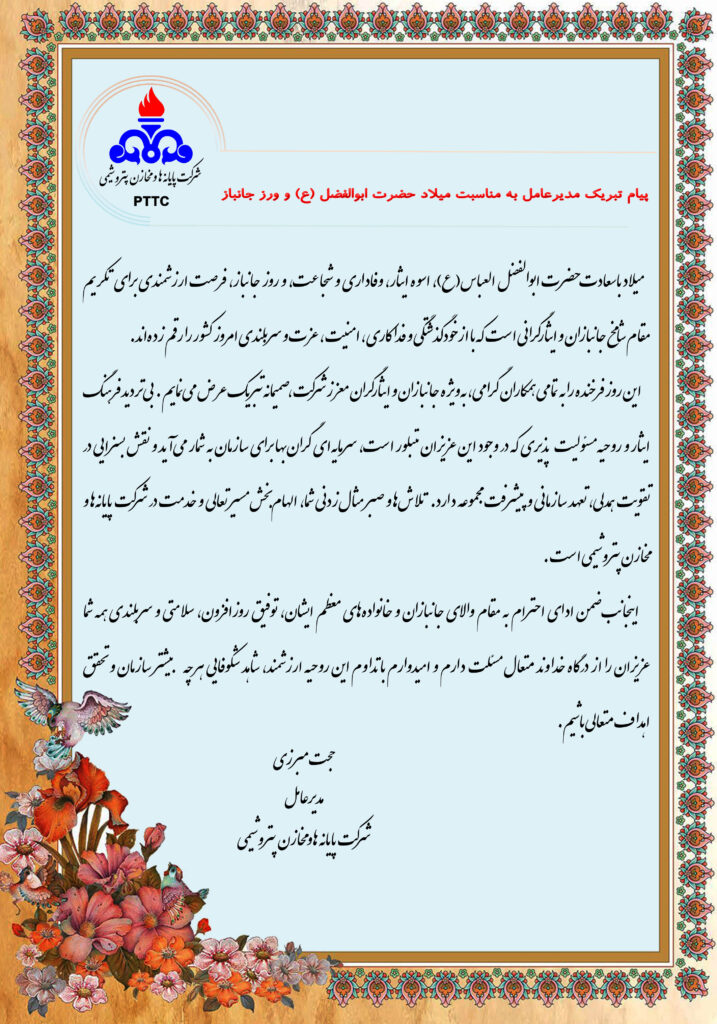 شرکت پایانه ها و مخازن پتروشیمی
PTTC
پیام تبریک مدیرعامل به مناسبت میلاد حضرت ابوالفضل (ع) و ورز جانباز
میلاد باسعادت حضرت ابوالفضل العباس(ع)، اسوه ایثار، وفاداری و شجاعت، و روز جانباز، فرصت ارزشمندی برای تکریم
مقام شامخ جانبازان و ایثارگرانی است که با از خودگذشتگی و فداکاری، امنیت، عزت و سربلندی امروز کشور را رقم زده‌اند.
این روز فرخنده را به تمامی همکاران گرامی، به‌ویژه جانبازان و ایثارگران معزز شرکت، صمیمانه تبریک عرض می‌نمایم. بی‌تردید فرهنگ
ایثار و روحیه مسئولیت پذیری که در وجود این عزیزان متبلور است، سرمایه‌ای گران‌بها برای سازمان به شمار می‌آید و نقش بسزایی در
تقویت همدلی، تعهد سازمانی و پیشرفت مجموعه دارد. تلاش‌ها و صبر مثال زدنی شما، الهام‌بخش مسیر تعالی و خدمت در شرکت پایانه‌ها و
مخازن پتروشیمی است.
اینجانب ضمن ادای احترام به مقام والای جانبازان و خانواده‌های معظم ایشان، توفیق روزافزون، سلامتی و سربلندی همه شما
عزیزان را از درگاه خداوند متعال مسئلت دارم و امیدوارم با تداوم این روحیه ارزشمند، شاهد شکوفایی هرچه .بیشتر سازمان و تحقق
اهداف متعالی باشیم.
حجت مبرزی
مدیرعامل
شرکت پایانه ها و مخازن پتروشیمی